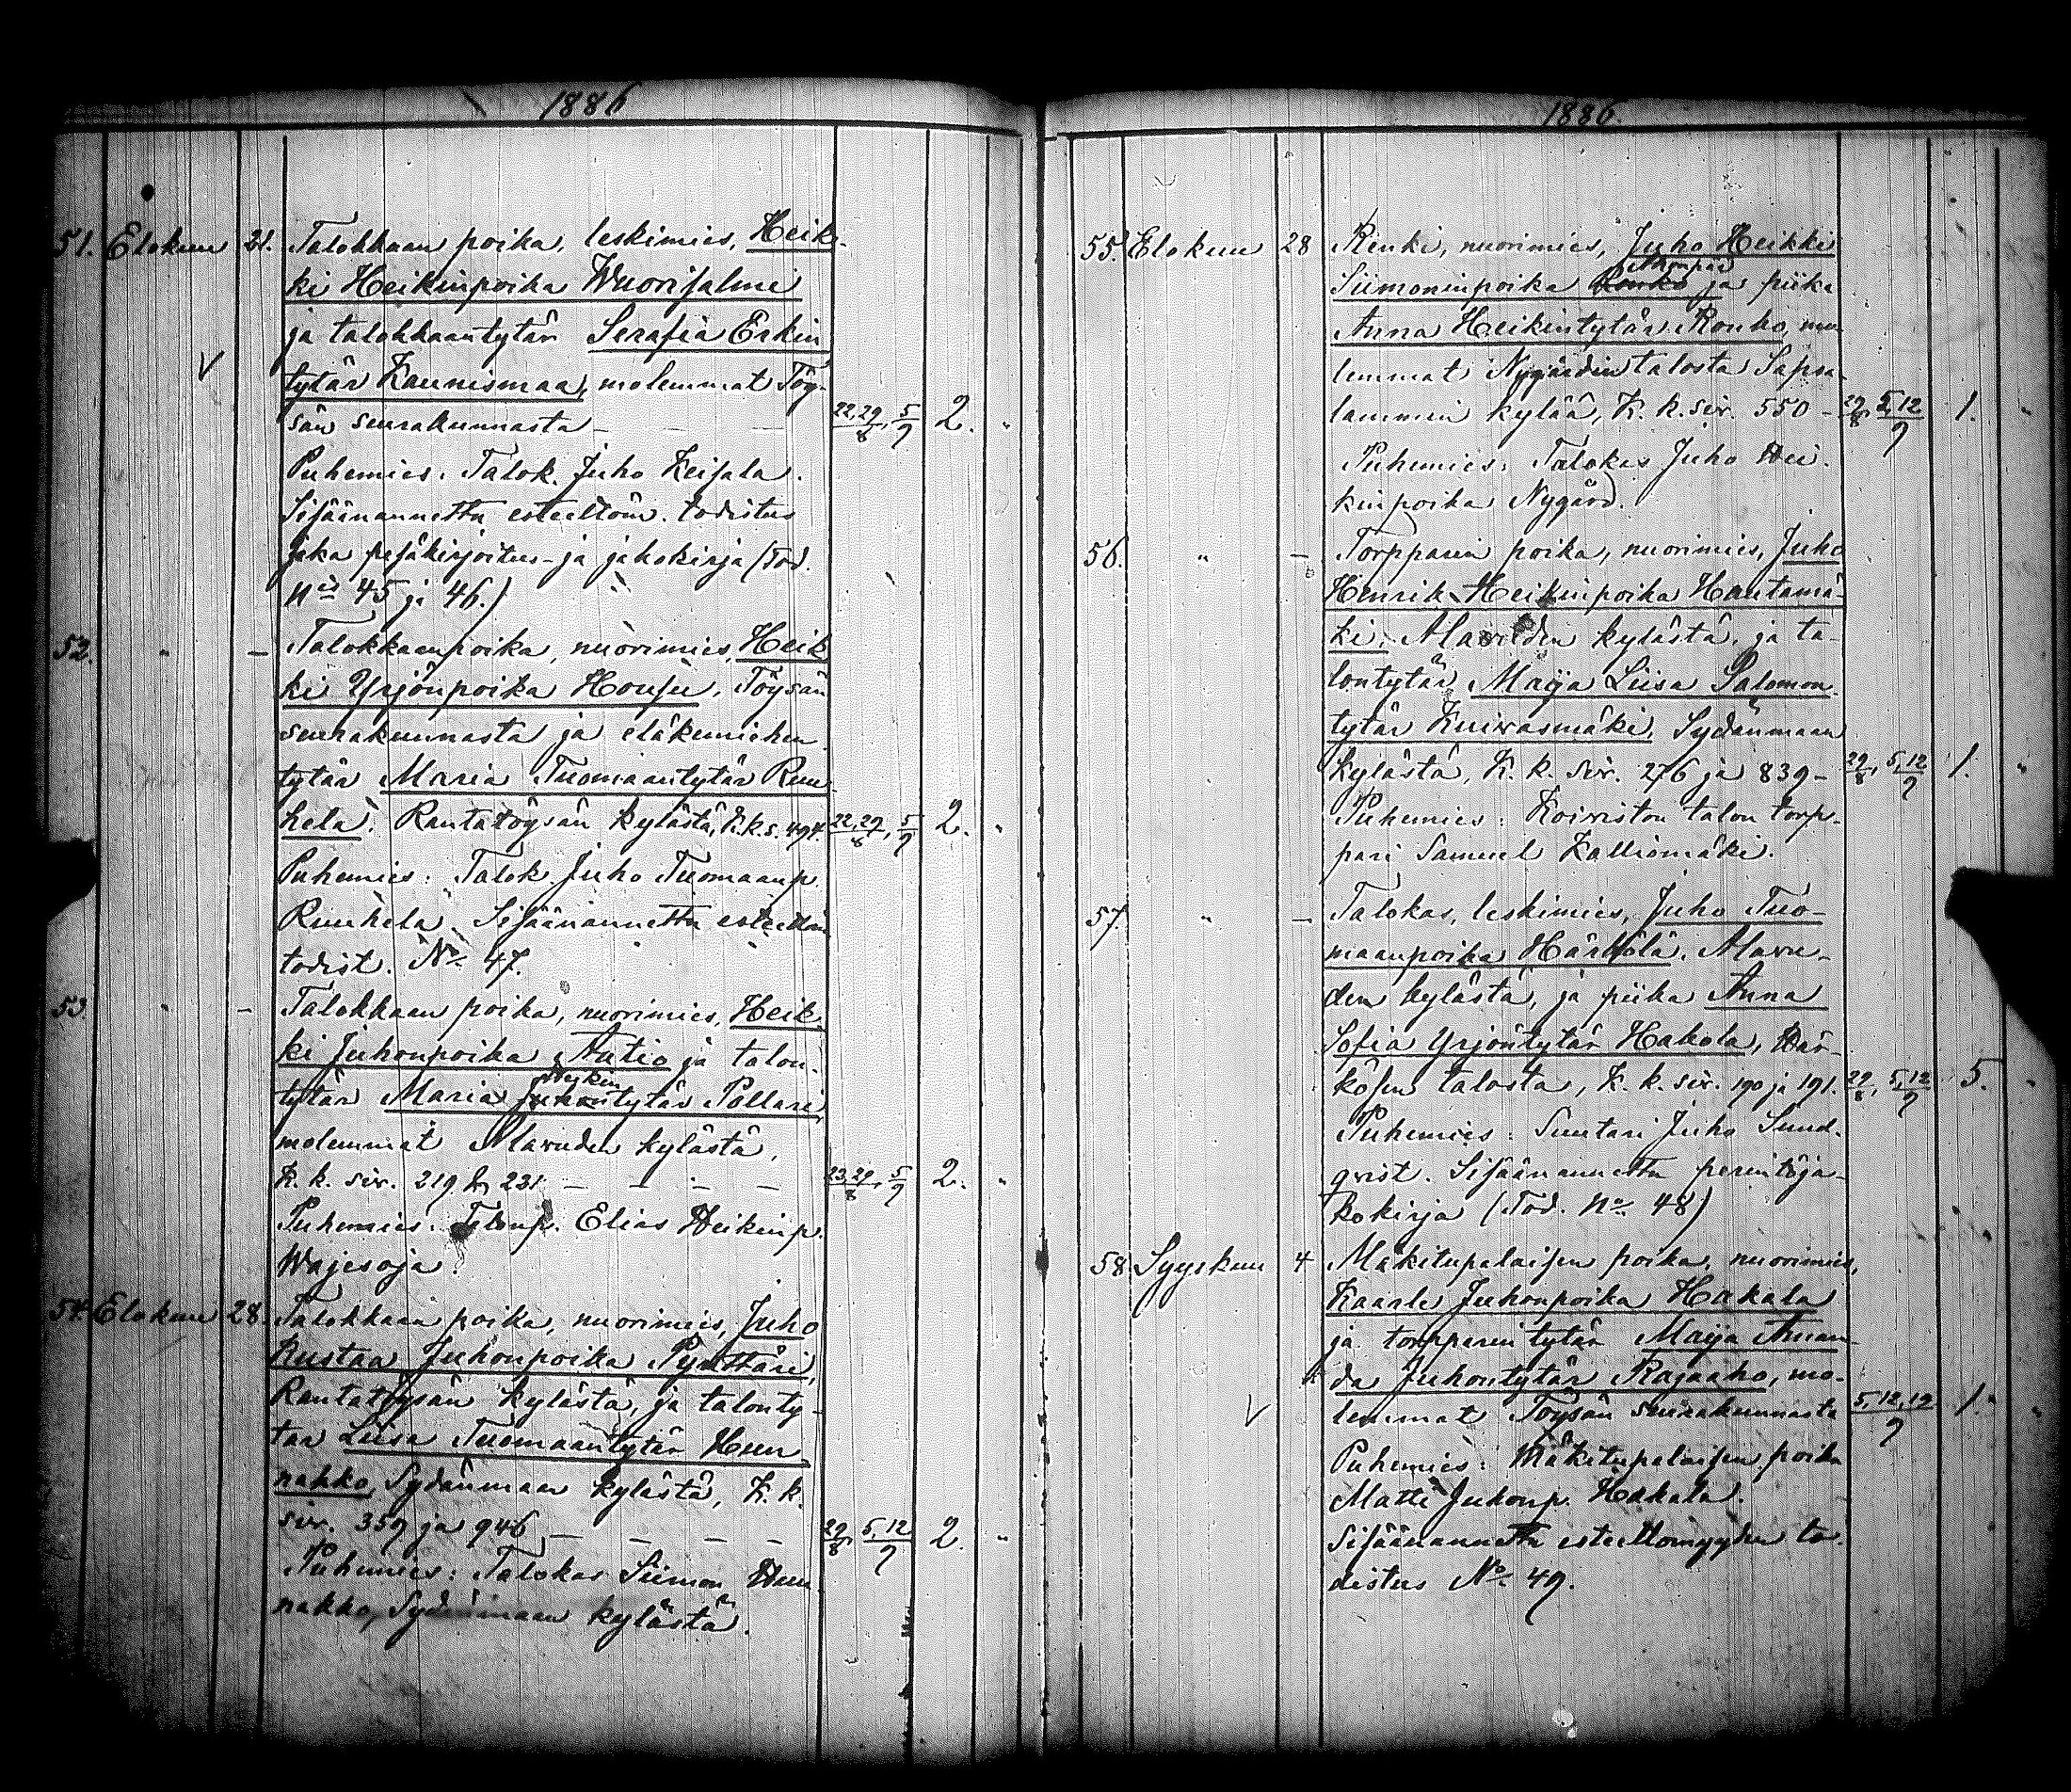 1886
51. Elokuu 21. Talokkaan poika, leskimies, Heik-
ki Heikinpoika Wuorisalmi
ja talokkaantytär Serafia Erkin
tytär Kaunismaa, molemmat Töy-
sän seurakunnasta — 22, 29/8, 5/9 2. "
Puhemies: Talok. Juho Keisala.
Sisäänannettu esteettöm. todistus
jaka pesäkirjoitus- ja jakokirja (Tod.
No 45 ja 46.)
52. " — Talokkaanpoika, nuorimies, Heik
ki Yrjönpoika Housu, Töysän
seurakunnasta ja eläkemiehen
tytär Maria Tuomaantytär Ruu-
hela, Rantatöysän kylästä, K.k.s. 494. 22, 29/8, 5/9 2. "
Puhemies: Talok Juho Tuomaanp.
Ruuhela. Sisäänannettu esteettöm
todist. No 47.
53 " — Talokkaan poika, nuorimies, Heik-
ki Juhonpoika Autio ja talon-
tytär Maria Juhontytär Pollari,
molemmat Alavuden kylästä,
K. k. siv. 219 ja 231 — — — — 23, 29/8, 5/9 2. "
Puhemies: Talonp. Elias Heikinp.
Wajesoja.
54. Elokuu 28. Talokkaan poika, nuorimies, Juho
Kustaa Juhonpoika Pynttäri,
Rantatöysän kylästä, ja talonty-
tär Liisa Tuomaantytär Hun
nakko, Sydänmaan kylästä, K. k.
siv. 359 ja 946 — — — — 29/8, 5, 12/9 2. "
Puhemies: Talokas Siimon Hun-
nakko, Sydänmaan kylästä.
1886.
55. Elokuu 28 Renki, nuorimies, Juho Heikki
Siimoninpoika ja piika
Anna Heikintytär Ronko, mo-
lemmat Nygårdin talosta Sapsa-
lammin kylää, K. k. siv. 550 — 29/8, 5, 12/9 1. "
Puhemies: Talokas Juho Hei-
kinpoika Nygård.
56. " — Torpparin poika, nuorimies, Juho
Henrik Heikinpoika Hautamä-
ki, Alavuden kylästä, ja ta-
lontytär Maija Liisa Salomon-
tytär Kuivasmäki, Sydänmaan
kylästä, K. k. siv. 276 ja 839 — 29/8, 5, 12/9 1. "
Puhemies: Koiviston talon torp-
pari Samuel Kalliomäki.
57. " — Talokas, leskimies, Juho Tuo-
maanpoika Härkölä, Alavu-
den kylästä, ja piika Anna
Sofia Yrjöntytär Hakola, Här-
kösen talosta, K. k. siv. 190 ja 191. 29/8, 5, 12/9 5. "
Puhemies: Suutari Juho Sund-
qvist. Sisäänannettu perintöja-
kokirja (Tod. No 48)
58 Syyskuu 4 Mäkitupalaisen poika, nuorimies,
Kaarle Juhonpoika Hakala
ja torpparintytär Maija Aman-
da Juhontytär Rajaaho, mo-
lemmat Töysän seurakunnasta 5, 12, 19/9 1. "
Puhemies: Mäkitupalaisen poika
Matti Juhonp. Hakala.
Sisäänannettu esteettömyyden to-
distus No 49.